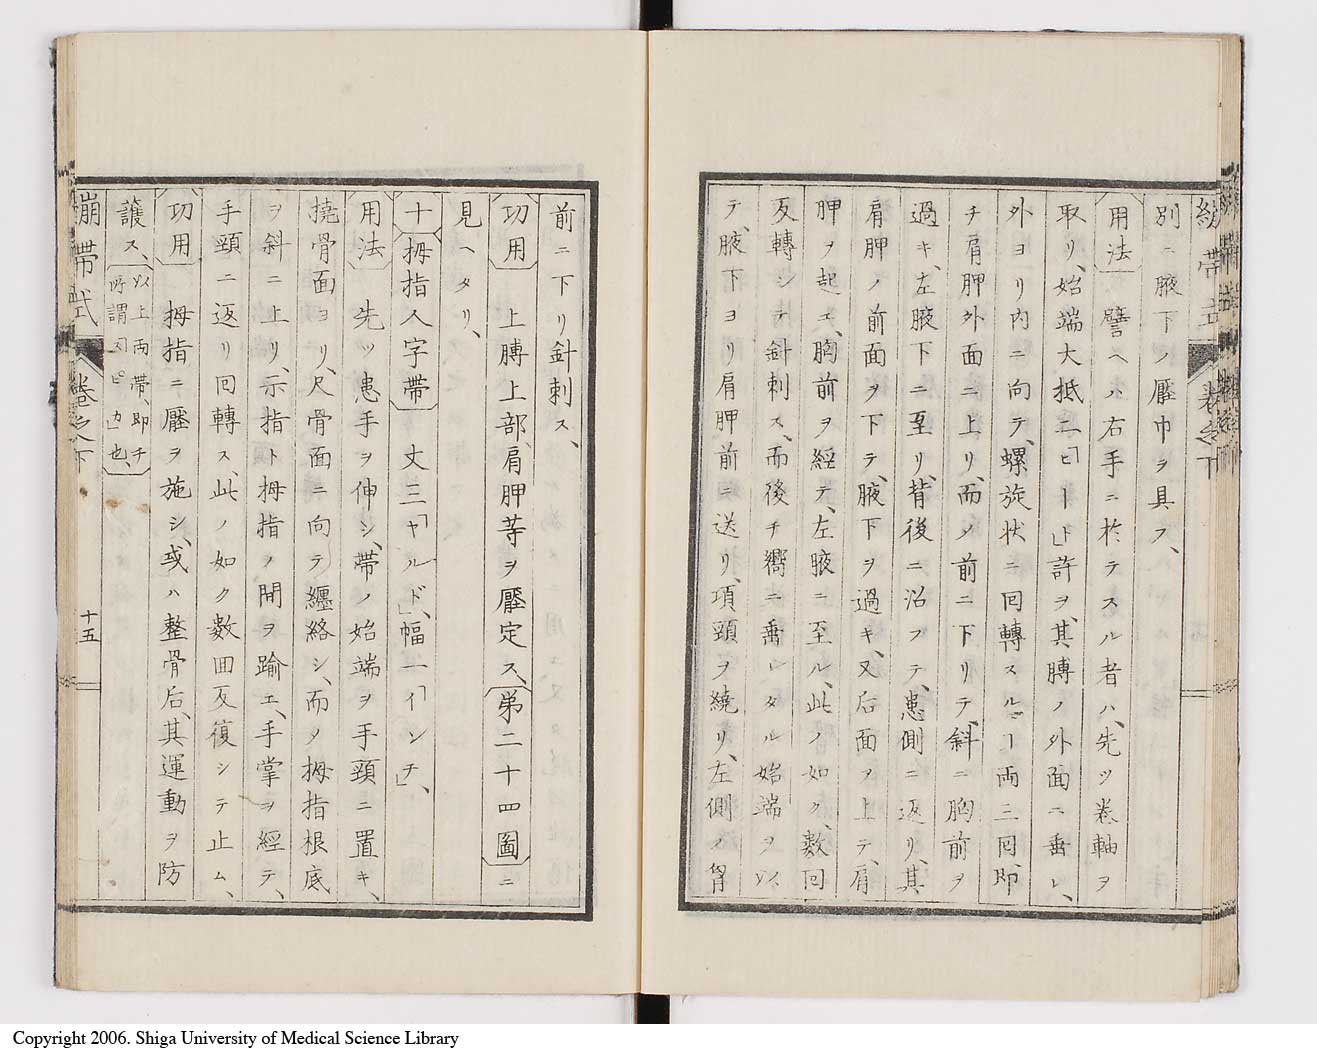 別ニ腋下ノ壓巾ヲ具フ、
用法 譬ヘハ右手ニ於テスル者ハ、先ツ卷軸ヲ
取リ、始端大抵二「ヒート」許ヲ、其膊ノ外面ニ垂レ、
外ヨリ内ニ向テ、螺旋状ニ囘轉スルヿ一両三囘、即
チ肩胛外面ニ上リ、而ノ前ニ下リテ、斜ニ胸前ヲ
過キ、左腋下ニ至リ、背後ニ沿フテ、患側ニ返リ、其
肩胛ノ前面ヲ下テ、腋下ヲ過キ、又后面ヲ上テ、肩
胛ヲ起エ、胸前ヲ經テ、左腋ニ至ル、此ノ如ク、數回
反轉シテ針刺ス、而後チ嚮ニ垂レタル始端ヲ以
テ、腋下ヨリ肩胛前ニ送リ、項頸ヲ繞リ、左側ノ胷
前ニ下リ針刺ス、
功用 上膊上部、肩胛等ヲ壓定ス、第二十四圖ニ
見ヘタリ、
十 拇指人字帶 丈三「ヤルド」、幅一「インチ」、
用法 先ツ患手ヲ伸シ、帶ノ始端ヲ手頸ニ置キ、
撓骨面ヨリ、尺骨面ニ向テ纏絡シ、而ノ拇指根底
ヲ斜ニ上リ、示指ト拇指ノ間ヲ踰エ、手掌ヲ經テ、
手頸ニ返リ囘轉ス、此ノ如ク數囬反復シテ止ム、
功用 拇指ニ壓ヲ施シ、或ハ整骨后、其運動ヲ防
護ス、以上両帶、即チ
所謂「スピカ」也、
繃帶式 卷之下 十五
Copyright 2006. Shiga University of Medical Science Library